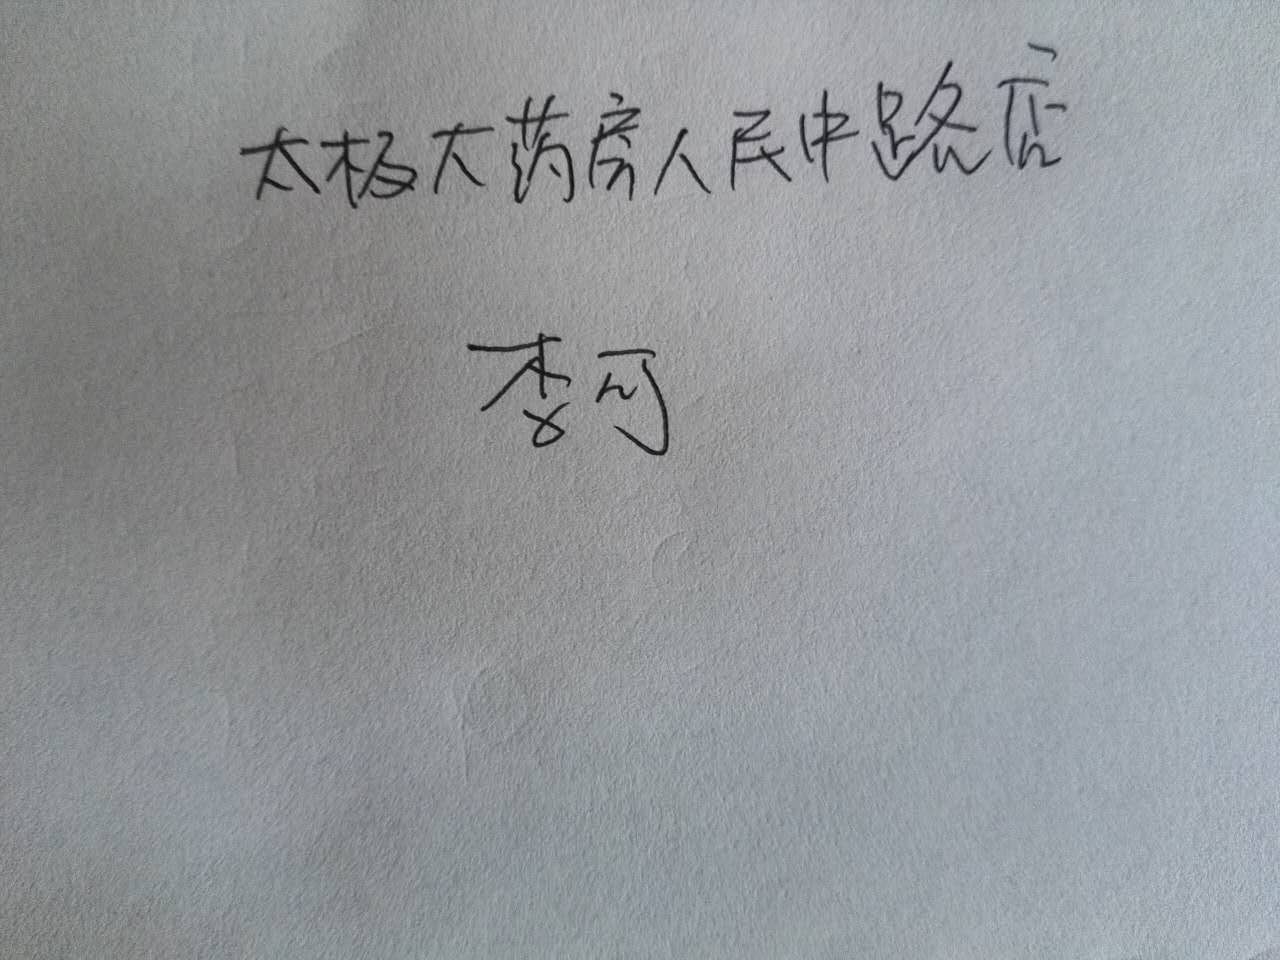 太极大药房人民中路店
李可